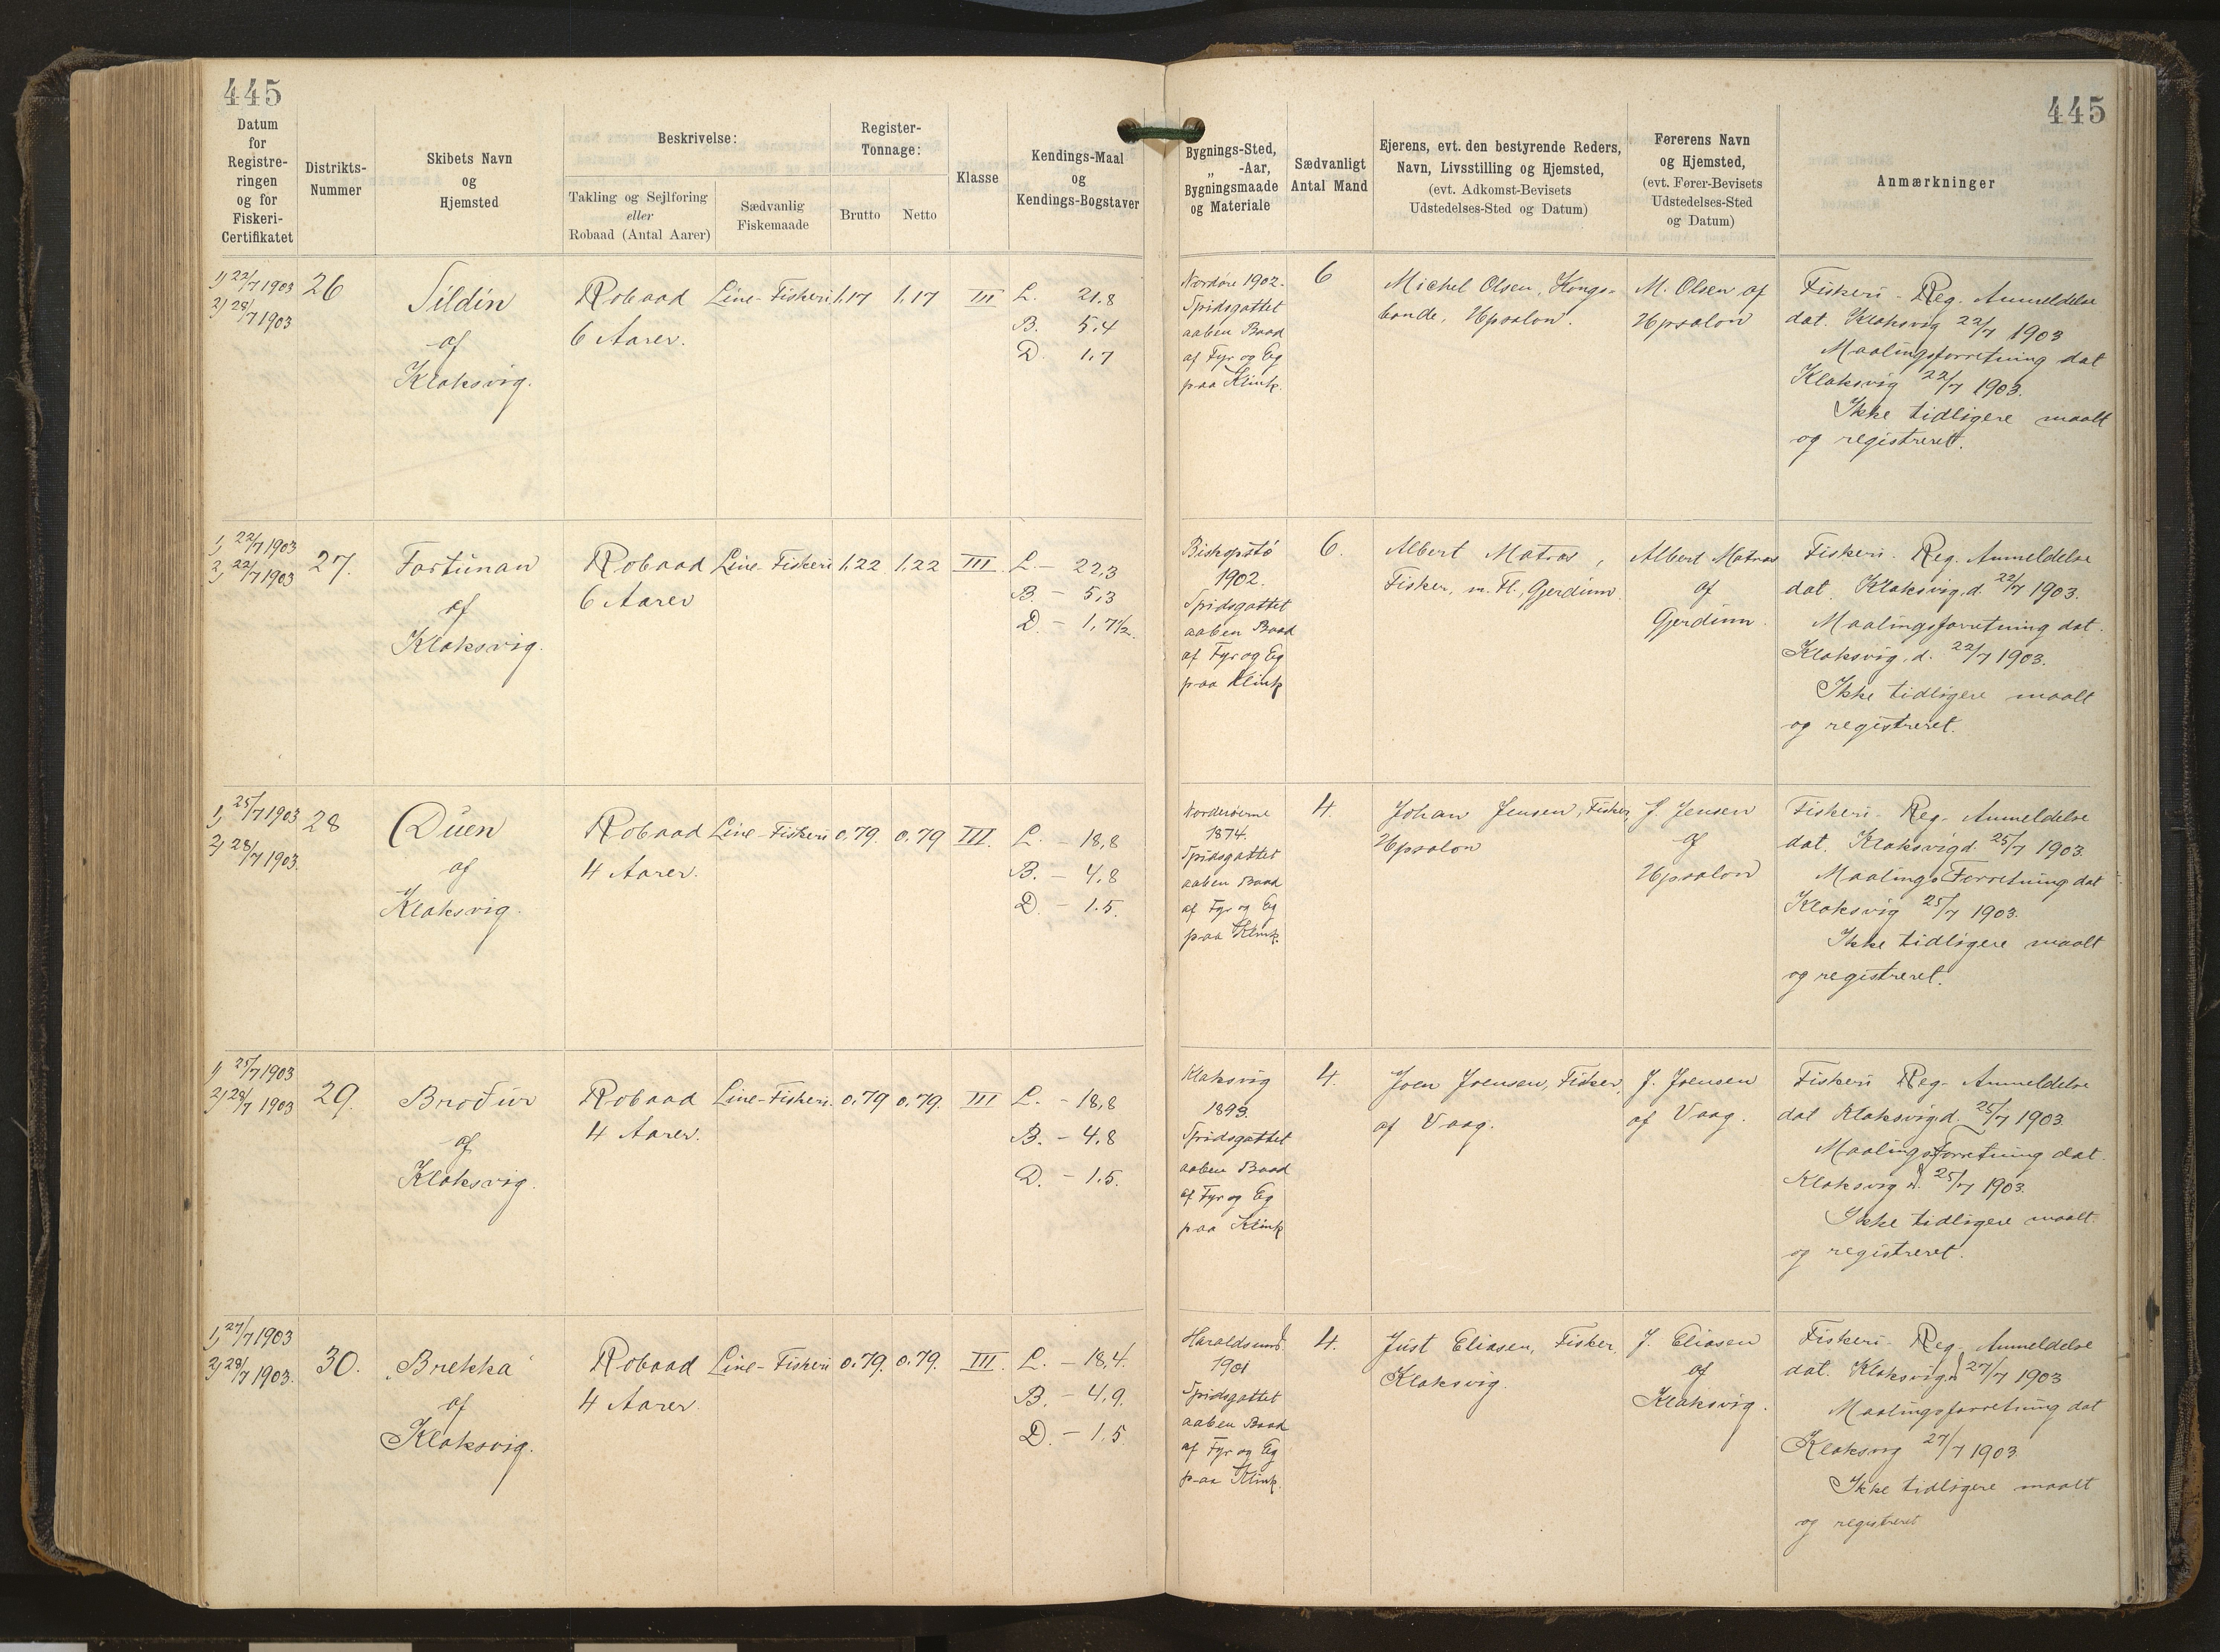 445
445
Datum
for
Registre-
ringen
og for
Fiskeri-
Certifikatet
Distrikts-
Nummer
Skibets Navn
og
Hjemsted
Beskrivelse:
Takling og Sejlføring
eller
Robaad (Antal Aarer)
Sædvanlig
Fiskemaade
Register-
Tonnage:
Brutto
Netto
Klasse
Kendings-Maal
og
Kendings-Bogstaver
Bygnings-Sted,
„ -Aar,
Bygningsmaade
og Materiale
Sædvanligt
Antal Mand
Ejerens, evt. den bestyrende Reders,
Navn, Livsstilling og Hjemsted,
(evt. Adkomst-Bevisets
Udstedelses-Sted og Datum)
Førerens Navn
og Hjemsted,
(evt. Fører-Bevisets
Udstedelses-Sted
og Datum)
Anmærkninger
1) 22/7 1903
2) 28/7 1903
26
Sildin
af
Klaksvig.
Robaad
6 Aarer.
Line-Fiskeri
1,17
1,17
III
L. 21,8
B. 5,4
D. 1,7
Nordøre 1902.
Spidsgattet
aaben Baad
af Fyr og Eg
paa Klink.
6
Michel Olsen, Kongs-
bonde, Upsalon.
M. Olsen af
Upsalon
Fiskeri-Reg. Anmeldelse
dat. Klaksvig 22/7 1903
Maalingsforretning dat
Klaksvig 22/7 1903.
Ikke tidligere maalt
og registreret.
1) 22/7 1903
2) 22/7 1903
27.
Fortúnan
af
Klaksvig.
Robaad
6 Aarer
Line-Fiskeri
1,22
1,22
III.
L. - 22,3
B. - 5,3
D. - 1,7½.
Bishopstø
1902.
Spidsgattet
aaben Baad
af Fyr og Eg
paa Klink
6.
Albert Matras,
Fisker, m. Fl., Gjerdum.
Albert Matras
af
Gjerdum.
Fiskeri-Reg. Anmeldelse
dat. Klaksvig, d. 22/7 1903.
Maalingsforretning dat.
Klaksvig, d. 22/7 1903.
Ikke tidligere maalt
og registreret.
1) 25/7 1903
2) 28/7 1903.
28
Dúen
af
Klaksvig.
Robaad
4 Aarer.
Line-Fiskeri
0,79.
0,79
III.
L. - 18,8
B. - 4,8
D. - 1.5.
Norderøerne
1874.
Spidsgattet
aaben Baad
af Fyr og Eg
paa Klink.
4.
Johan Jensen, Fisker,
Upsalon
J. Jensen
af
Upsalon
Fiskeri-Reg. Anmeldelse
dat. Klaksvig d. 25/7 1903.
Maalings Forretning dat
Klaksvig 25/7 1903.
Ikke tidligere maalt
og registreret.
1) 25/7 1903
2) 28/7 1903
29.
Broðúr
af
Klaksvig.
Robaad
4 Aarer.
Line-Fiskeri.
0,79
0,79.
III
L. - 18,8
B. - 4,8
D. - 1.5.
Klaksvig
1893.
Spidsgattet
aaben Baad
af Fyr og Eg
paa Klink
4.
Joen Joensen, Fisker,
af Vaag.
J. Joensen
af Vaag.
Fiskeri Reg. Anmeldelse
dat Klaksvig, d. 25/7 1903.
Maalingsforretning dat.
Klaksvig d. 25/7 1903.
Ikke tidligere maalt
og registreret.
1) 27/7 1903
2) 28/7 1903.
30.
Brekka
af
Klaksvig.
Robaad
4 Aarer.
Line-Fiskeri
0,79.
0,79.
III.
L. - 18,4.
B. - 4,9.
D. - 1.5
Haraldsund.
1901
Spidsgattet
aaben Baad
af Fyr og Eg
paa Klink.
4.
Just Eliasen, Fisker.
Klaksvig.
J. Eliasen
af
Klaksvig.
Fiskeri-Reg. Anmeldelse
dat. Klaksvig d 27/7 1903
Maalingsforretning dat
Klaksvig 27/7 1903.
Ikke tidligere maalt
og registreret